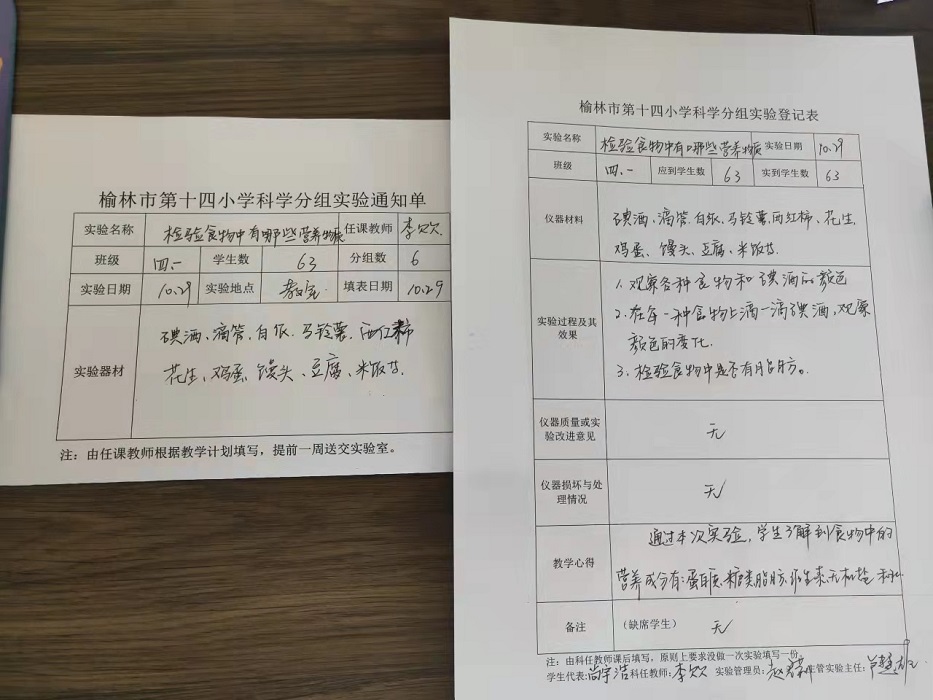 榆林市第十四小学科学分组实验通知单
实验名称 检验食物中有哪些营养物质 任课教师 李欠欠
班级 四.一 学生数 63 分组数 6
实验日期 10.29 实验地点 教室 填表日期 10.29
实验器材
碘酒、滴管、白纸、马铃薯、西红柿
花生、鸡蛋、馒头、豆腐、米饭等.
注：由任课教师根据教学计划填写，提前一周送交实验室。
榆林市第十四小学科学分组实验登记表
实验名称 检验食物中有哪些营养物质 实验日期 10.29
班级 四.一 应到学生数 63 实到学生数 63
仪器材料
碘酒、滴管、白纸、马铃薯、西红柿、花生、
鸡蛋、馒头、豆腐、米饭等.
实验过程及其
效果
1.观察各种食物和碘酒的颜色
2.在每一种食物上滴一滴碘酒,观察
颜色的变化.
3.检验食物中是否有脂肪。
仪器质量或实
验改进意见
无
仪器损坏与处
理情况
无
教学心得
通过本次实验,学生了解到食物中的
营养成分有:蛋白质、糖类、脂肪、维生素、无机盐和水
备注 （缺席学生） 无
注：由科任教师课后填写，原则上要求没做一次实验填写一份。
学生代表:尚宇浩 科任教师:李欠欠 实验管理员: 主管实验主任: